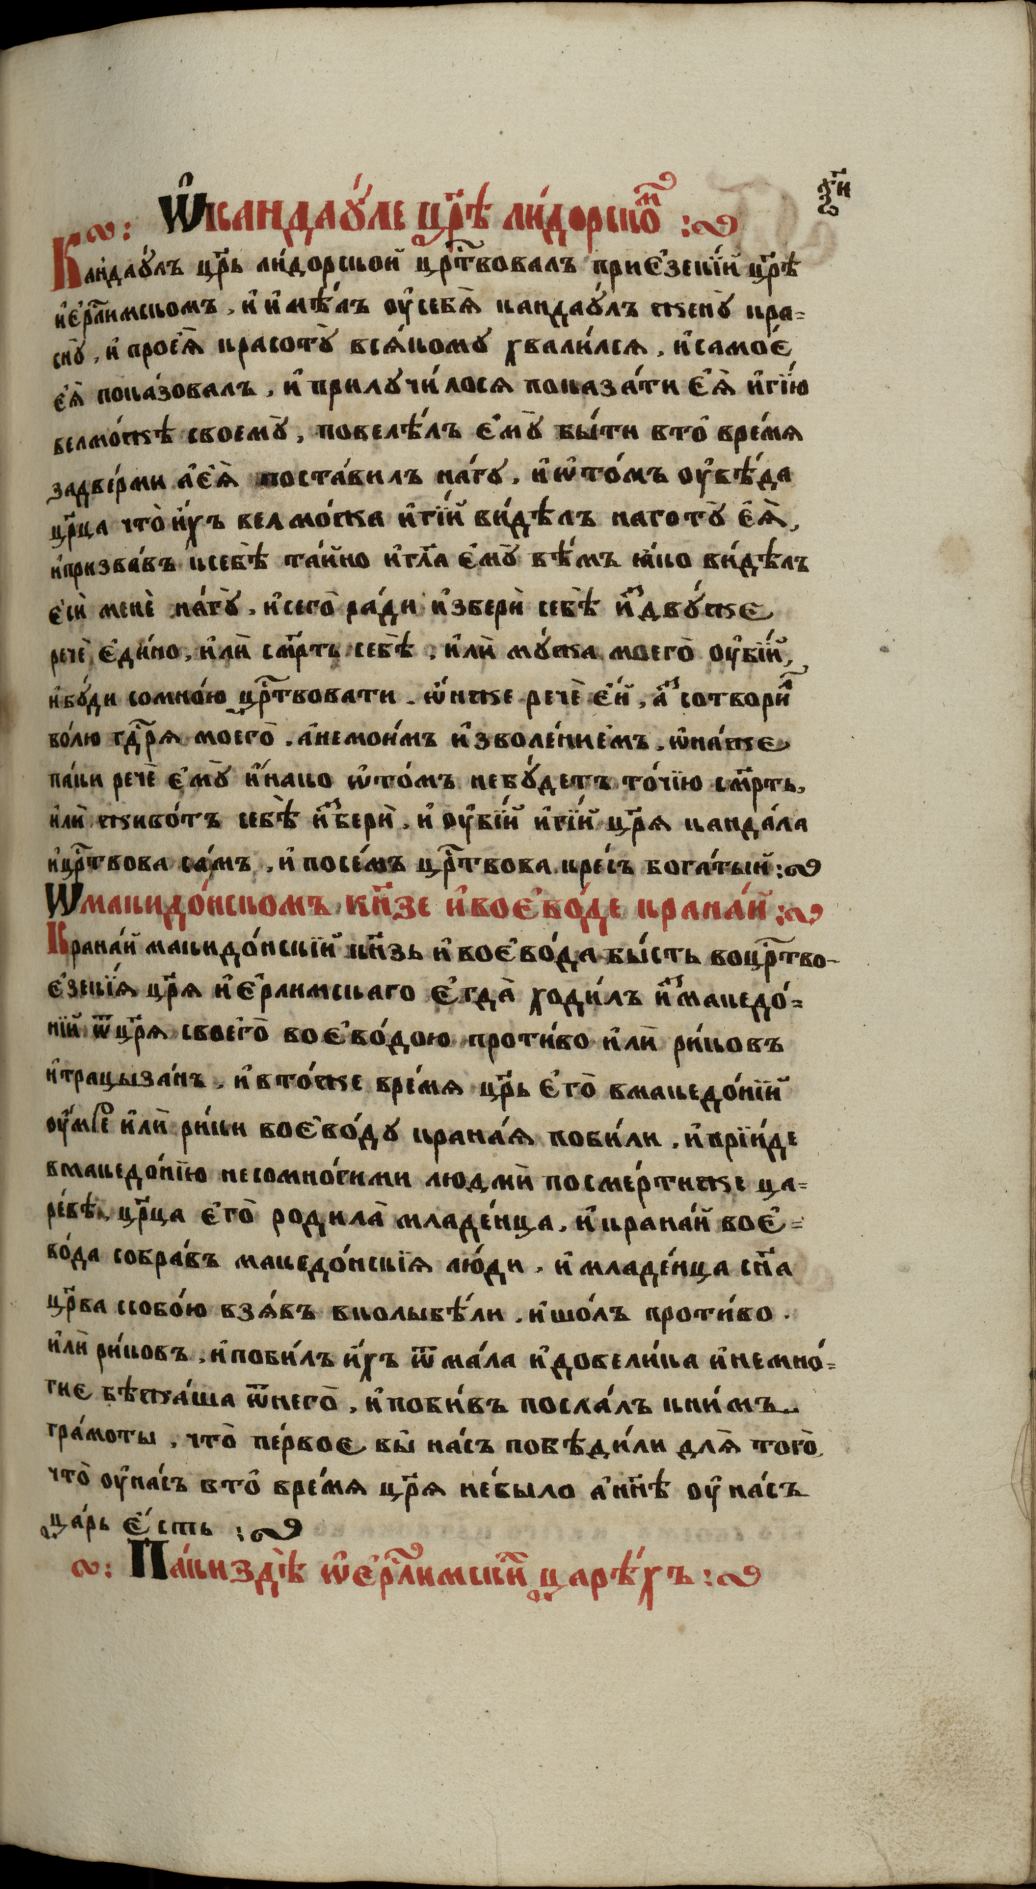 сн҃и
Ѡ҆кандау́ле цр҃ѣ ли́дорско᷇м :
Кандау́лъ цр҃ь ли́дорскои цр҃твовалъ приє҆зекі́и цр҃ѣ
и҆є҆рл҃имскомъ , и҆ и҆мѣ́лъ оу҆себѧ̀ кандау́лъ женꙋ̀ кра=
снꙋ̀ , и҆ проеѧ̀ красотꙋ̀ всѧ́кому хвали́лсѧ , и҆самоє́
є҆ѧ̀ пока́зовалъ , и҆ прилучи́лосѧ показа́ти є҆ѧ̀ и҆гі́ю
велмо́жѣ своемꙋ̀ , повелѣ́лъ є҆мꙋ̀ бы́ти вто̀ вре́мѧ
задве́рми а҆є҆ѧ̀ поста́вилъ на́гу , и҆ ѡ҆то́мъ оу҆вѣ́да
цр҃ца что̀ и҆́хъ велмо́жа и҆гі́й ви́дѣлъ наготꙋ̀ є҆ѧ̀ ,
и҆призва́въ ксебѣ̀ та́йно и҆гл҃а є҆мꙋ̀ вѣ́мъ ꙗ҆́ко ви́дѣлъ
є҆сѝ менѐ на́гꙋ̀ , и҆сего̀ ра́ди и҆зберѝ себѣ̀ и҆з̾дву́же
речѐ є҆ди́но , и҆лѝ см҃рть себѣ̀ , и҆лѝ му́жа моего̀ оу҆бі́й ,
и҆бу́ди сомно́ю цр҃твовати . ѡ҆́нже речѐ є҆́й , а҆з̾ сотвори́л
во́лю гд҃рѧ моего̀ , а҆немои́мъ и҆зволе́нием̾ъ , ѡ҆на́же
па́ки речѐ є҆мꙋ̀ и҆́нако ѡ҆то́мъ небу́детъ то́чїю см҃рть ,
и҆лѝ живо́тъ себѣ̀ и҆зберѝ , и҆ оу҆бі́й и҆гі́й цр҃ѧ канда́ла
и҆цр҃твова са́мъ , и҆ посе́мъ цр҃твова кресъ бога́тый :
Ѡ҆македо́нскомъ кн҃зе и҆воє҆во́де крана́й :
Крана́й македо́нскїй кн҃зь и҆ воє҆во́да бы́сть воцр҃тво
є҆зекі́ѧ цр҃ѧ и҆є҆рл҃имскаго є҆гда̀ ходи́лъ и҆з̾македо́=
нїй ѿ цр҃ѧ своего̀ воє҆во́дою проти́во и҆лѝ ри́ковъ
и҆трацыза́нъ , и҆ вто́же вре́мѧ цр҃ь є҆го̀ вмакедо́нїй
оу҆́мре и҆лѝ ри́ки воє҆во́ду крана́ѧ поби́ли , и҆ прїи́де
вмакедо́нїю несомно́гими людмѝ посме́ртиже ца=
ре́вѣ , цр҃ца є҆го̀ родила̀ младе́нца , и҆крана́й воє҆=
во́да собра́въ македо́нскїѧ лю́ди , и҆ младе́нца сн҃а
цр҃ва ссобо́ю взѧ́въ вколыбѣ́ли , и҆шо́лъ проти́во .
и҆лѝ ри́ковъ , и҆поби́лъ и҆́хъ ѿ ма́ла и҆довели́ка и҆немно́=
гиє бѣжа́ша ѿнего̀ , и҆ поби́въ посла́лъ кни́мъ
гра́моты , что̀ пе́рвоє вы̀ на́съ повѣди́ли длѧ̀ того̀ ,
что̀ оу҆на́съ вто̀ вре́мѧ цр҃ѧ небыло а҆нн҃ѣ оу҆ на́съ
царь є҆́сть :
Па́киздѣ̀ ѡ҆є҆рл҃имски́х царѣ́хъ :